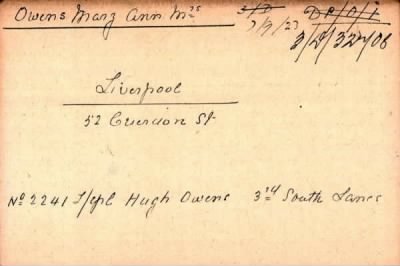 Owens Mary Ann Mrs
7/9/23
3/2/3224/06
Liverpool
52 Cuerdon St
No 2241 L/Cpl Hugh Owens 3rd South Lancs